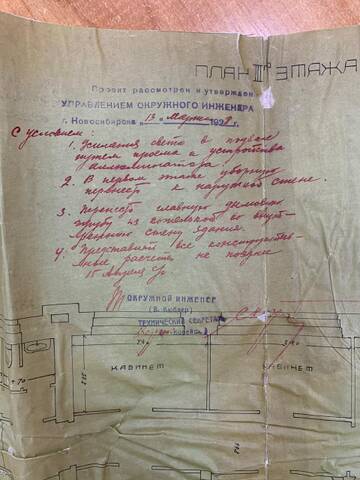 ПЛАН III го ЭТАЖА
Проект рассмотрен и утвержден
УПРАВЛЕНИЕМ ОКРУЖНОГО ИНЖЕНЕРА
г. Новосибирска „ 13 " марта 192 г.
С условием:
1. Усиления света в подвале
путем проема и устройства
иллюминатора.
2. В первом этаже уборную
перенести к наружной стене.
3. Перенести главную дымовую
трубу из котельной во внут-
реннюю стену здания.
4. Представить все конструктив-
ные расчеты не позднее
15 Апреля
ОКРУЖНОЙ ИНЖЕНЕР
ТЕХНИЧЕСКИЙ СЕКРЕТАРЬ
КАБИНЕТ
КАБИНЕТ